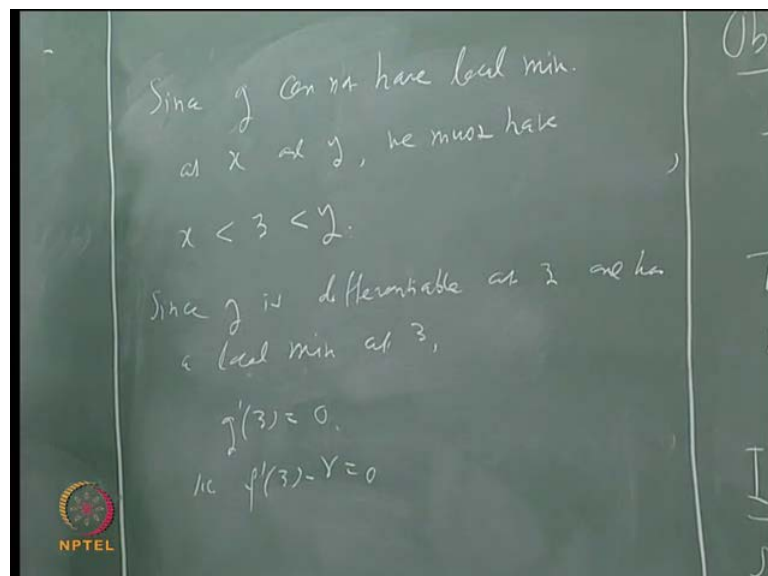 Since g can not have local min.
at x and y, we must have
x < 3 < y.
Since g is differentiable at 3 and has
a local min at 3,
g'(3) = 0.
ie f'(3) - r = 0
Ob
NPTEL